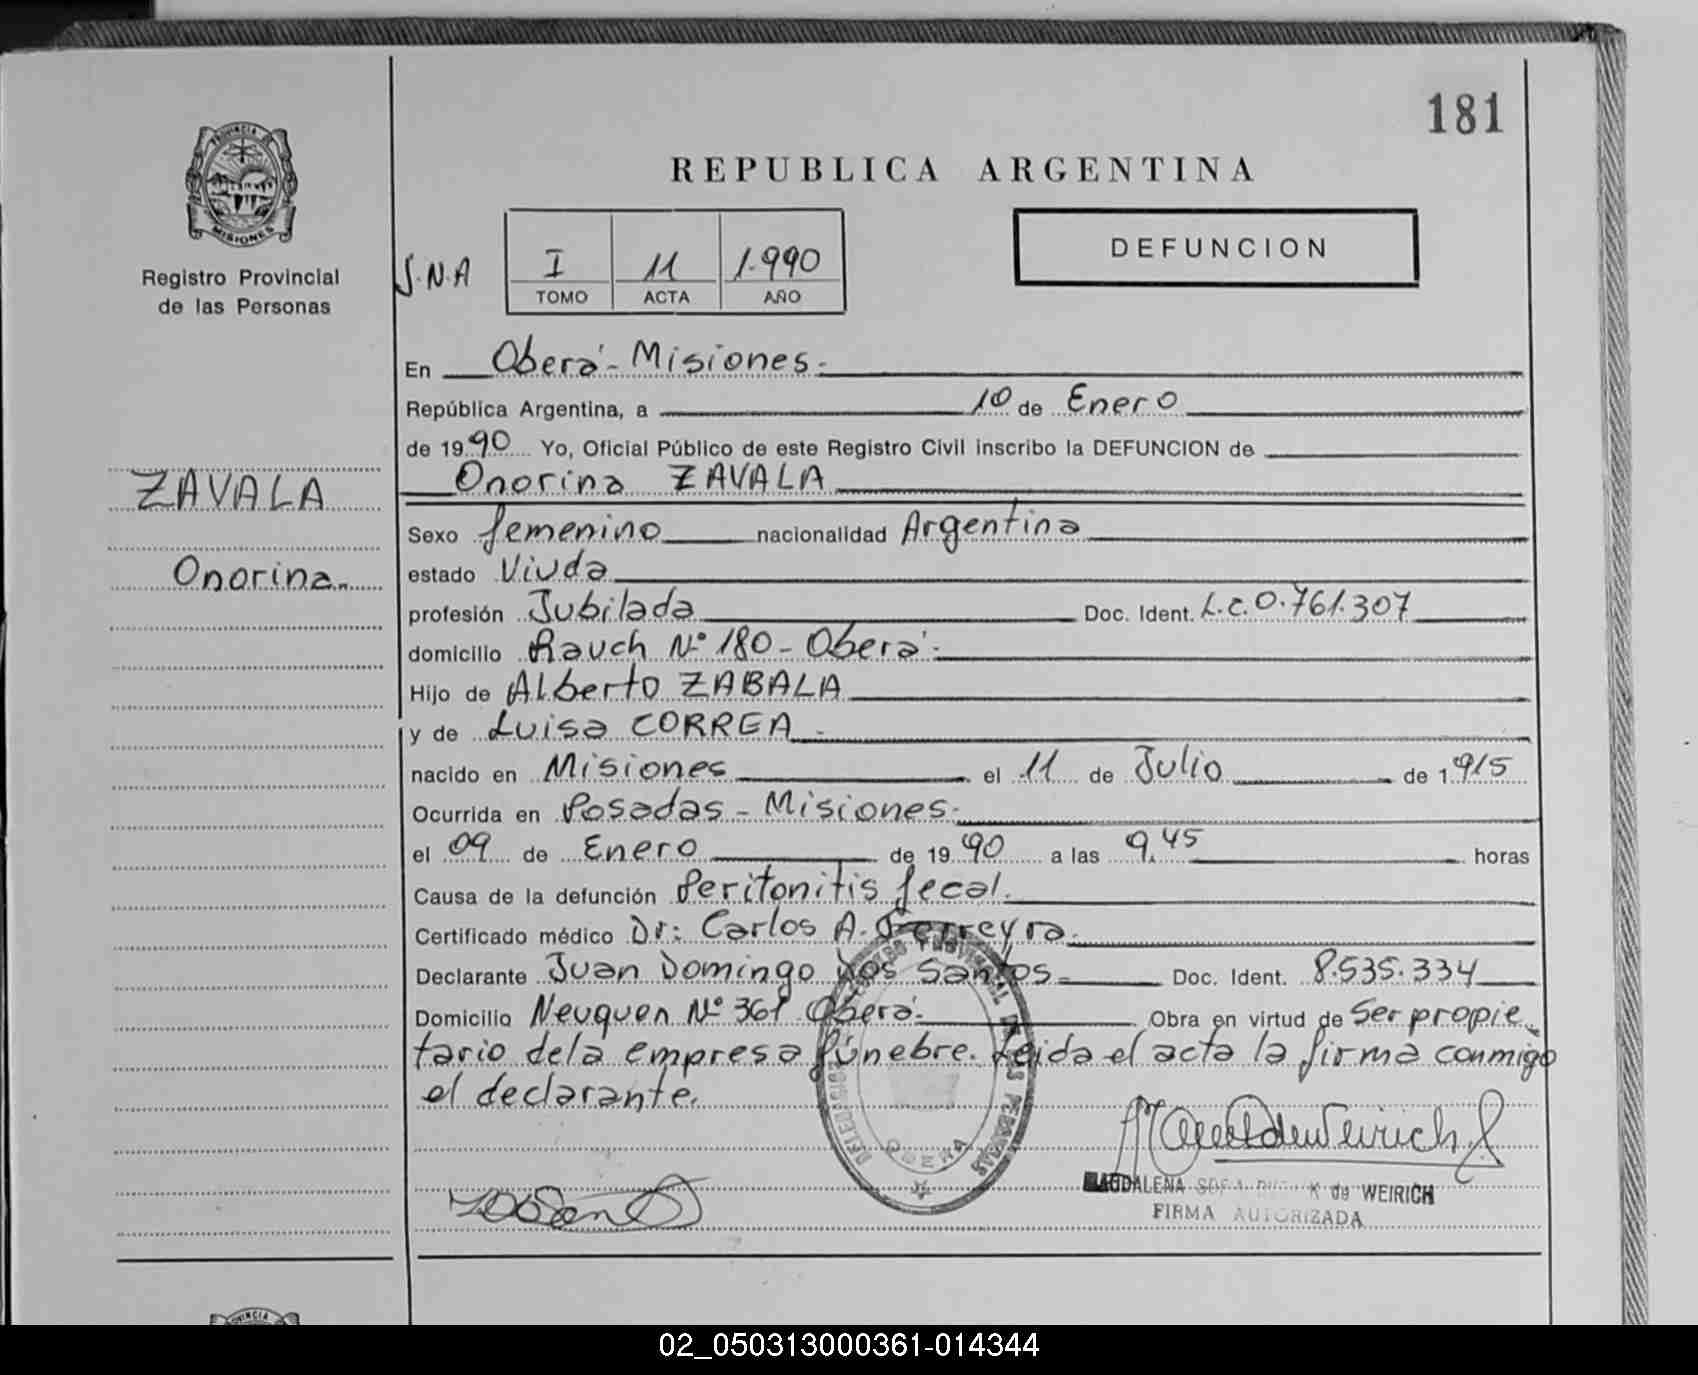 181
PROVINCIA DE
MISIONES
Registro Provincial
de las Personas
REPUBLICA ARGENTINA
DEFUNCION
S.N.A
I 11 1.990
TOMO ACTA AÑO
En Oberá - Misiones.
República Argentina, a 10 de Enero
de 1990 Yo, Oficial Público de este Registro Civil inscribo la DEFUNCION de
Onorina ZAVALA
ZAVALA
Onorina
Sexo femenino nacionalidad Argentina
estado Viuda
profesión Jubilada Doc. Ident. L.C.0.761.307
domicilio Rauch Nº 180 - Oberá.
Hijo de Alberto ZABALA
y de Luisa CORREA
nacido en Misiones el 11 de Julio de 1.915
Ocurrida en Posadas - Misiones.
el 09 de Enero de 1990 a las 9,45 horas
Causa de la defunción Peritonitis fecal.
Certificado médico Dr: Carlos A. Ferreyra.
Declarante Juan Domingo Dos Santos Doc. Ident. 8.535.334
Domicilio Neuquen Nº 361 Oberá. Obra en virtud de Ser propie
tario dela empresa fúnebre. Leida el acta la firma conmigo
el declarante.
MAGDALENA K de WEIRICH
FIRMA AUTORIZADA
OBERA
02_050313000361-014344